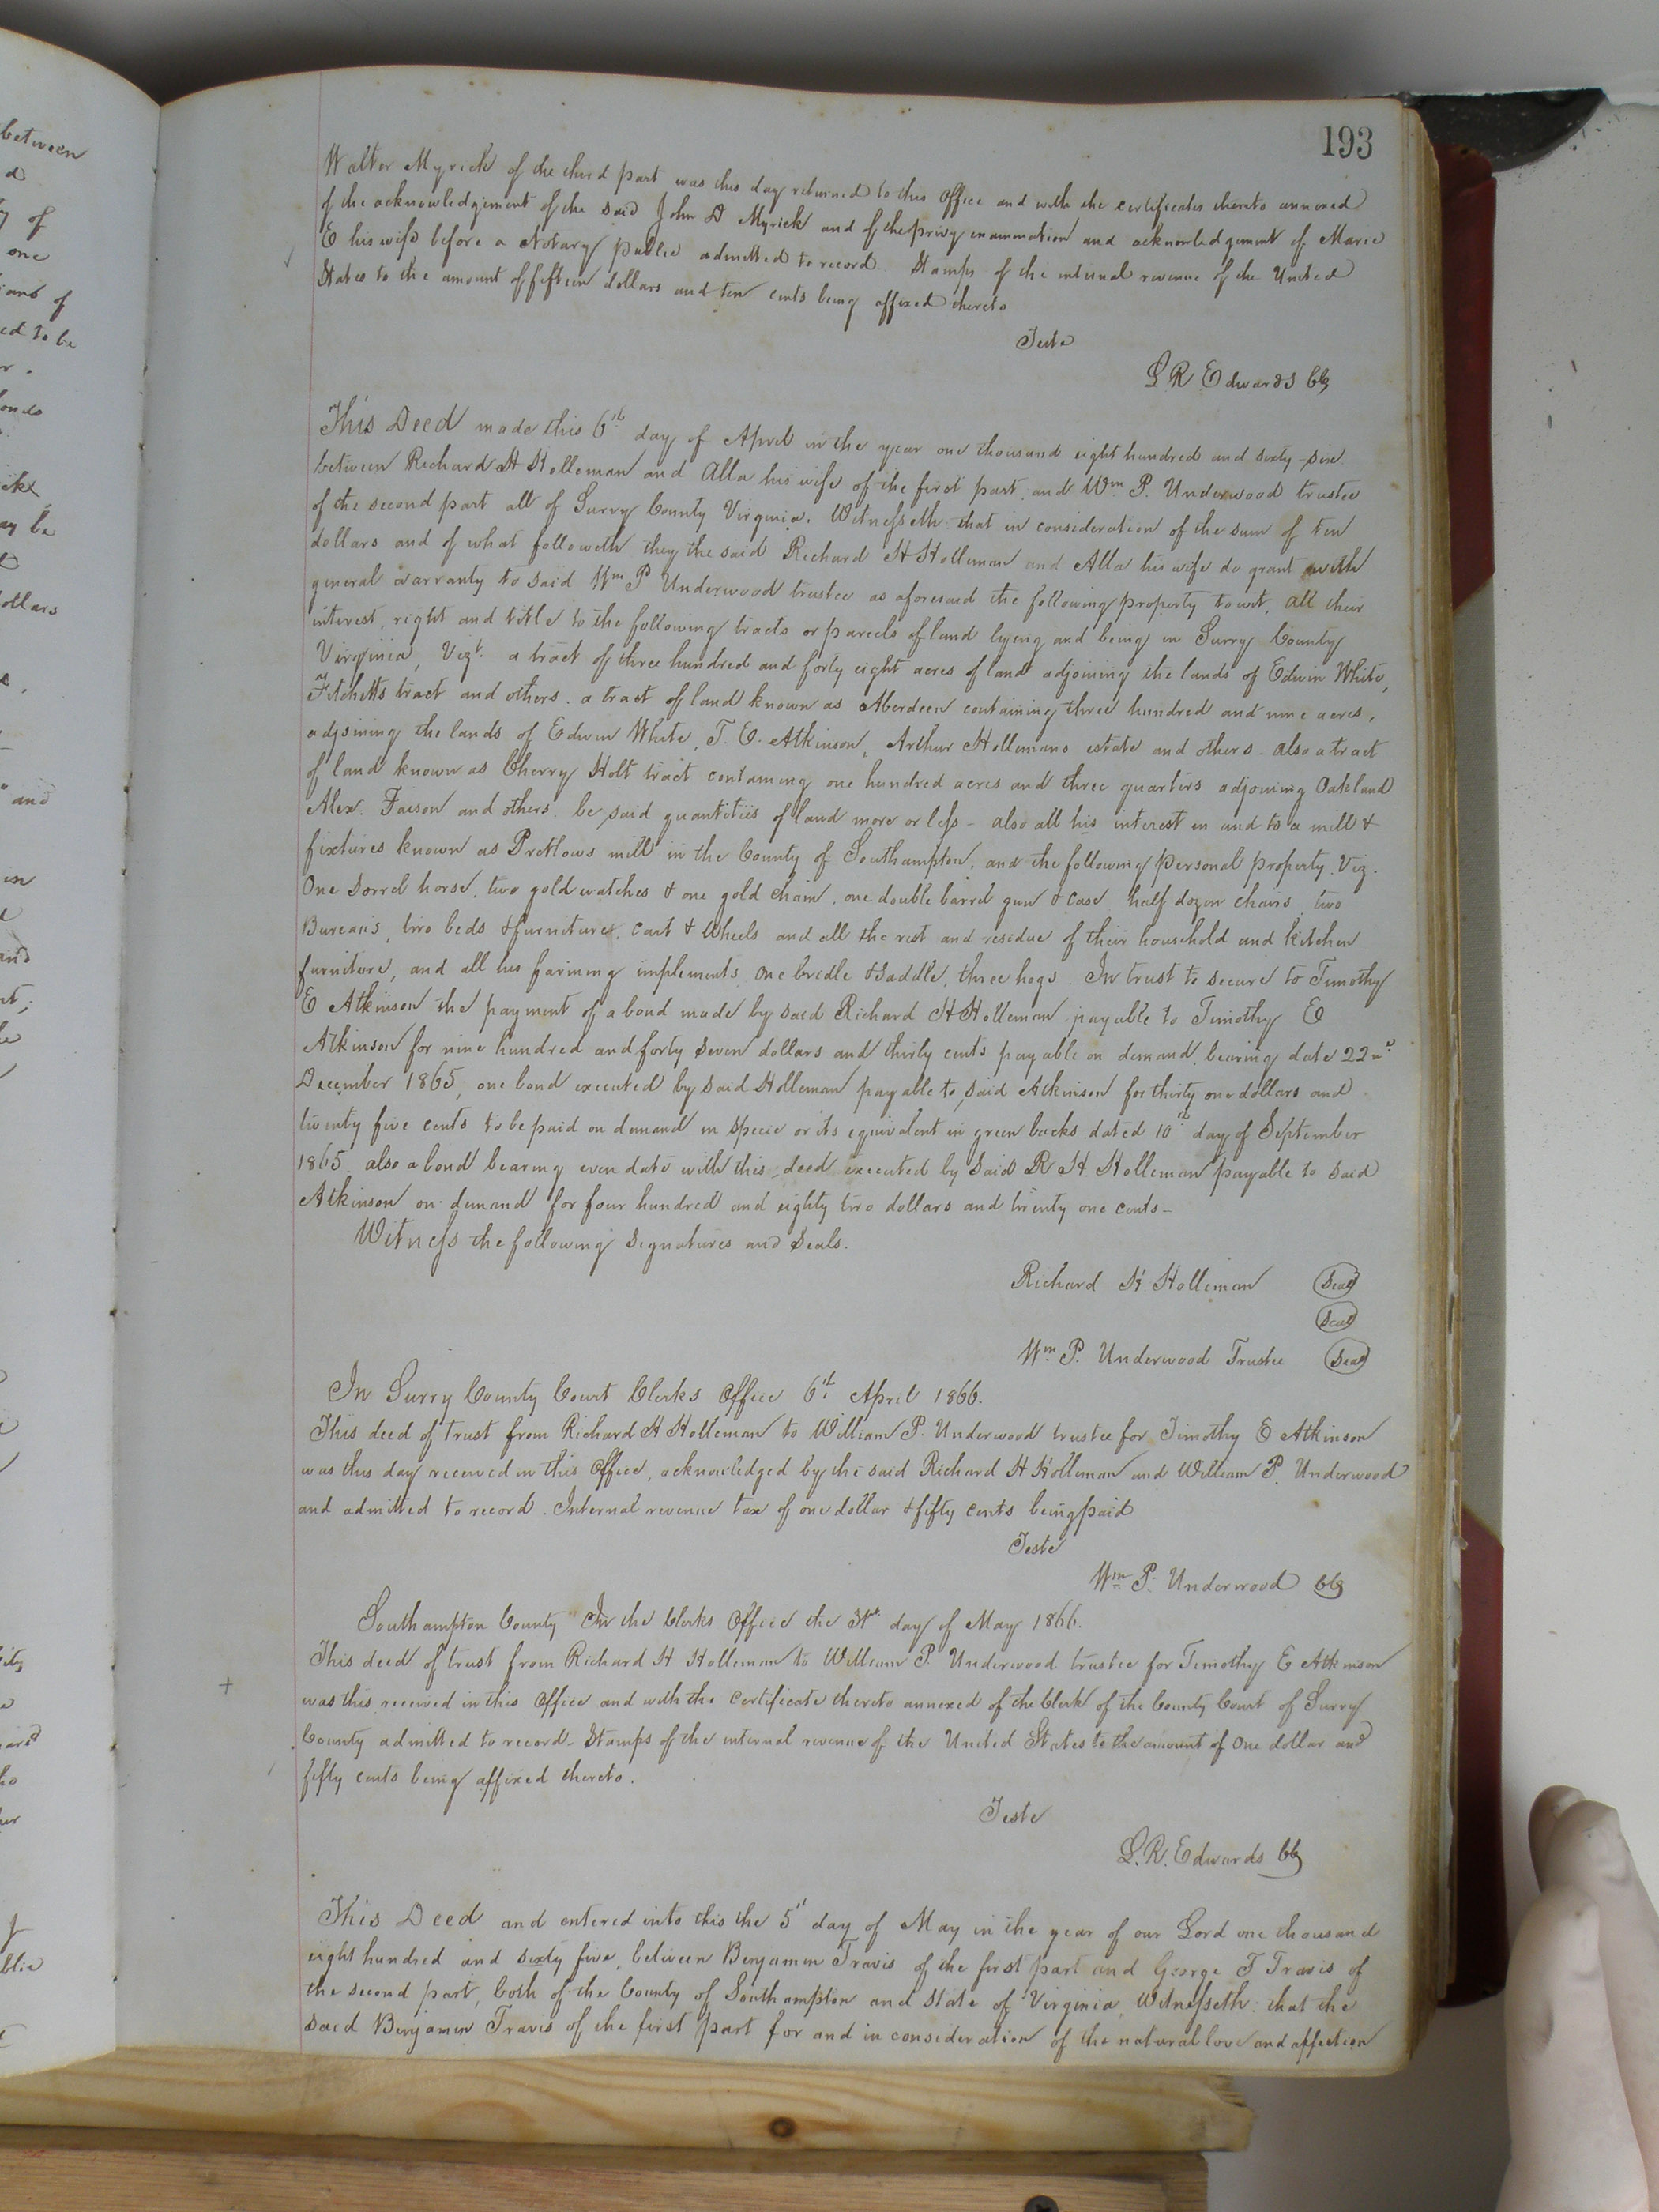 193
Walter Myrick of the third part was this day returned to this Office and with the certificates thereto annexed
of the acknowledgement of the said John D Myrick and of the privy examination and acknowledgement of Marie
E his wife before a Notary public admitted to record. Stamps of the internal revenue of the United
States to the amount of fifteen dollars and ten cents being affixed thereto
Teste
L R Edwards Clk
This Deed made this 6th day of April in the year one thousand eight hundred and sixty-six
between Richard H Holleman and Alla his wife of the first part, and Wm P. Underwood trustee
of the second part all of Surry County Virginia. Witnesseth that in consideration of the sum of ten
dollars and of what followeth they the said Richard H Holleman and Alla his wife do grant with
general warranty to said Wm P Underwood trustee as aforesaid the following property to wit, all their
interest, right and title to the following tracts or parcels of land lyeing and being in Surry County
Virginia, Vizt. a tract of three hundred and forty eight acres of land adjoining the lands of Edwin White,
Fitchetts tract and others. a tract of land known as Aberdeen containing three hundred and nine acres,
adjoining the lands of Edwin White, T. E. Atkinson, Arthur Hollemans estate and others - also a tract
of land known as Cherry Holt tract containing one hundred acres and three quarters adjoining Oakland
Alex. Faison and others. be said quantities of land more or less - also all his interest in and to a mill &
fixtures known as Pretlows mill in the County of Southampton, and the following personal property. Viz.
One Sorrel horse, two gold watches & one gold chain, one double barrel gun & case, half dozen chairs, two
Bureaus, two beds & furnitures, cart & Wheels and all the rest and residue of their household and kitchen
furniture, and all his farming implements one bridle & saddle, three hogs. In trust to secure to Timothy
E Atkinson the payment of a bond made by said Richard H Holleman payable to Timothy E
Atkinson for nine hundred and forty seven dollars and thirty cents payable on demand, bearing date 22nd
December 1865, one bond executed by said Holleman payable to said Atkinson for thirty one dollars and
twenty five cents to be paid on demand in specie or its equivalent in green backs dated 10th day of September
1865 also a bond bearing even date with this deed executed by said R H. Holleman payable to said
Atkinson on demand for four hundred and eighty two dollars and twenty one cents -
Witness the following signatures and Seals.
Richard H Holleman Seal
Seal
Wm P. Underwood Trustee Seal
In Surry County Court Clerks Office 6th April 1866.
This deed of trust from Richard H Holleman to William P. Underwood trustee for Timothy E Atkinson
was this day received in this Office, acknowledged by the said Richard H Holleman and William P. Underwood
and admitted to record. Internal revenue tax of one dollar & fifty cents being paid
Teste
Wm P. Underwood Clk
Southampton County In the Clerks Office the 31st day of May 1866.
This deed of trust from Richard H Holleman to William P. Underwood trustee for Timothy E Atkinson
was this received in this Office and with the certificate thereto annexed of the Clerk of the County Court of Surry
County admitted to record - Stamps of the internal revenue of the United States to the amount of One dollar and
fifty cents being affixed thereto.
Teste
L. R. Edwards Clk
This Deed and entered into this the 5th day of May in the year of our Lord one thousand
eight hundred and sixty five, between Benjamin Travis of the first part and George T Travis of
the second part, both of the County of Southampton and State of Virginia, Witnesseth: that the
said Benjamin Travis of the first part for and in consideration of the natural love and affection